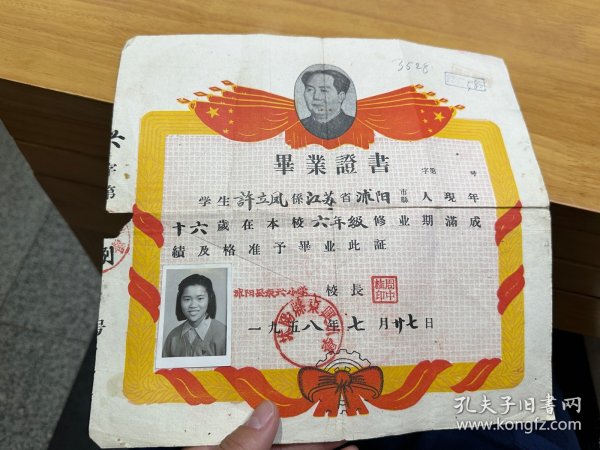 3528
畢業證書
字第 号
学生 許立凤 係 江苏 省 沭阳 市縣 人 現 年
十六 歲 在 本 校 六年級 修 业 期 滿 成
績 及 格 准 予 畢 业 此 証
校 長
一九五八年七月廿七日
孔夫子旧书网
www.kongfz.com